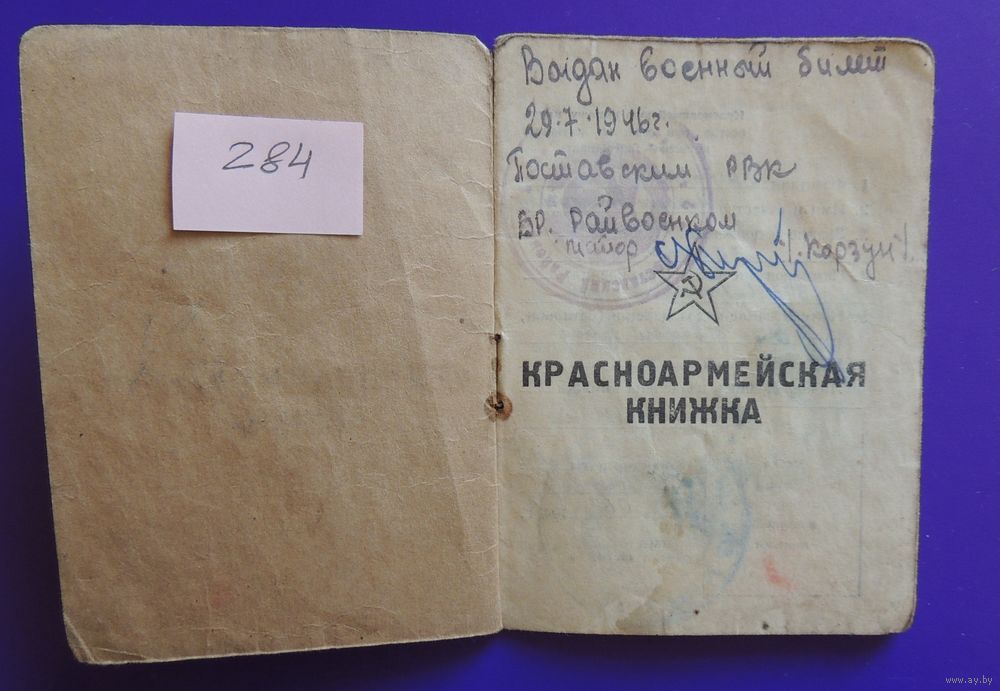 284
Выдан военный билет
29.7.1946г.
Поставским РВК
ВР. Райвоенком
майор /.Корзун/.
КРАСНОАРМЕЙСКАЯ
КНИЖКА
www.ay.by